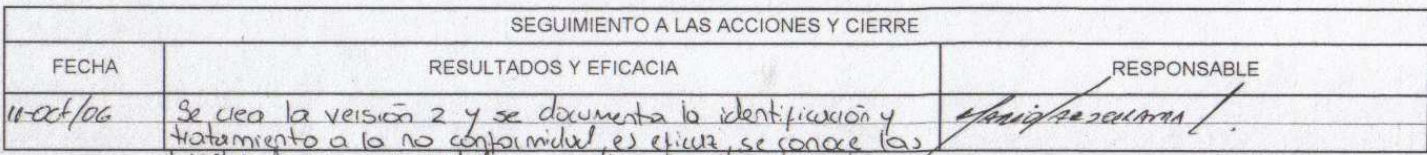 SEGUIMIENTO A LAS ACCIONES Y CIERRE
FECHA RESULTADOS Y EFICACIA RESPONSABLE
11-Oct/06 Se crea la versión 2 y se documenta la identificación y
tratamiento a la no conformidad, es eficaz, se conoce las